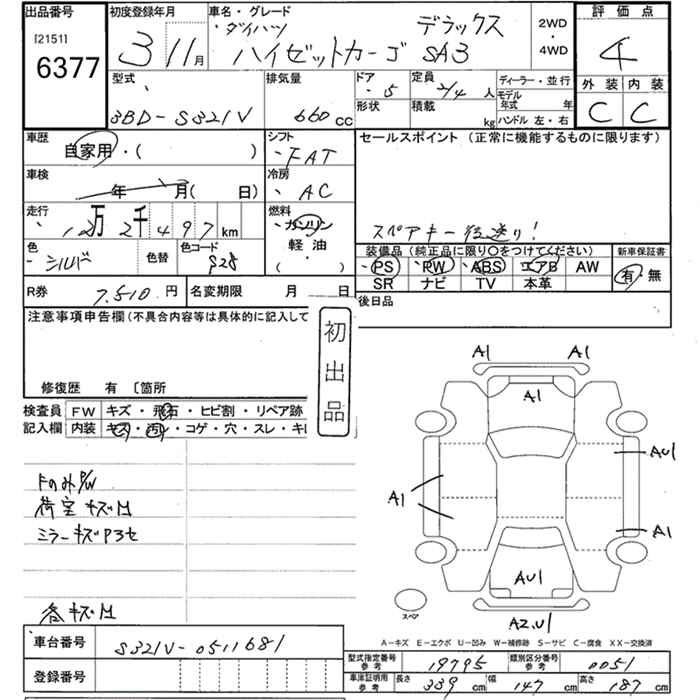 出品番号
[2151]
6377
初度登録年月
3 11月
車名・グレード
ダイハツ デラックス
ハイゼットカーゴ SA3
2WD
・
4WD
評価点
4
外装 内装
C C
型式
3BD-S321V
排気量
660 cc
ドア
5
形状
定員
2/4 人
積載 kg
ディーラー・並行
モデル年式 年
ハンドル 左・右
車歴
自家用・( )
シフト
FAT
セールスポイント (正常に機能するものに限ります)
スペアキー後送り!
車検
年 月( 日)
冷房
AC
走行
12万2千497 km
燃料
ガソリン
軽油
( )
色
シルバ
色替
色コード
S28
装備品 (純正品に限り○をつけてください)
PS PW ABS エアB AW
SR ナビ TV 本革
新車保証書
有・無
R券
7,510 円
名変期限 月 日
後日品
注意事項申告欄 (不具合内容等は具体的に記入して
初出品
修復歴 有 〔箇所
検査員記入欄
FW キズ・飛石・ヒビ割・リペア跡
内装 キズ・汚レ・コゲ・穴・スレ・キレ
FのみP/W
荷室キズM
ミラーキズP3セ
各キズM
A1 A1
A1
AU1
A1
A1
AU1
スペア
A2.U1
A-キズ E-エクボ U-凹み W-補修跡 S-サビ C-腐食 XX-交換済
車台番号
S321V-0511681
登録番号
型式指定番号 参考
19795
類別区分番号 参考
0051
車庫証明用 参考
長さ 339 cm 幅 147 cm 高さ 187 cm